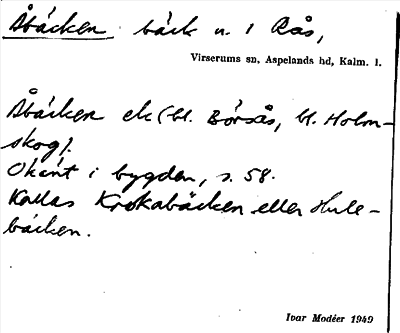 Åbäcken bäck n. i Rås,
Virserums sn, Aspelands hd, Kalm. l.
Åbäcken ek (bl. Börsås, bl. Holm-
skog).
Okänt i bygden, s. 58.
Kallas Krokabäcken eller Hule-
bäcken.
Ivar Modéer 1949